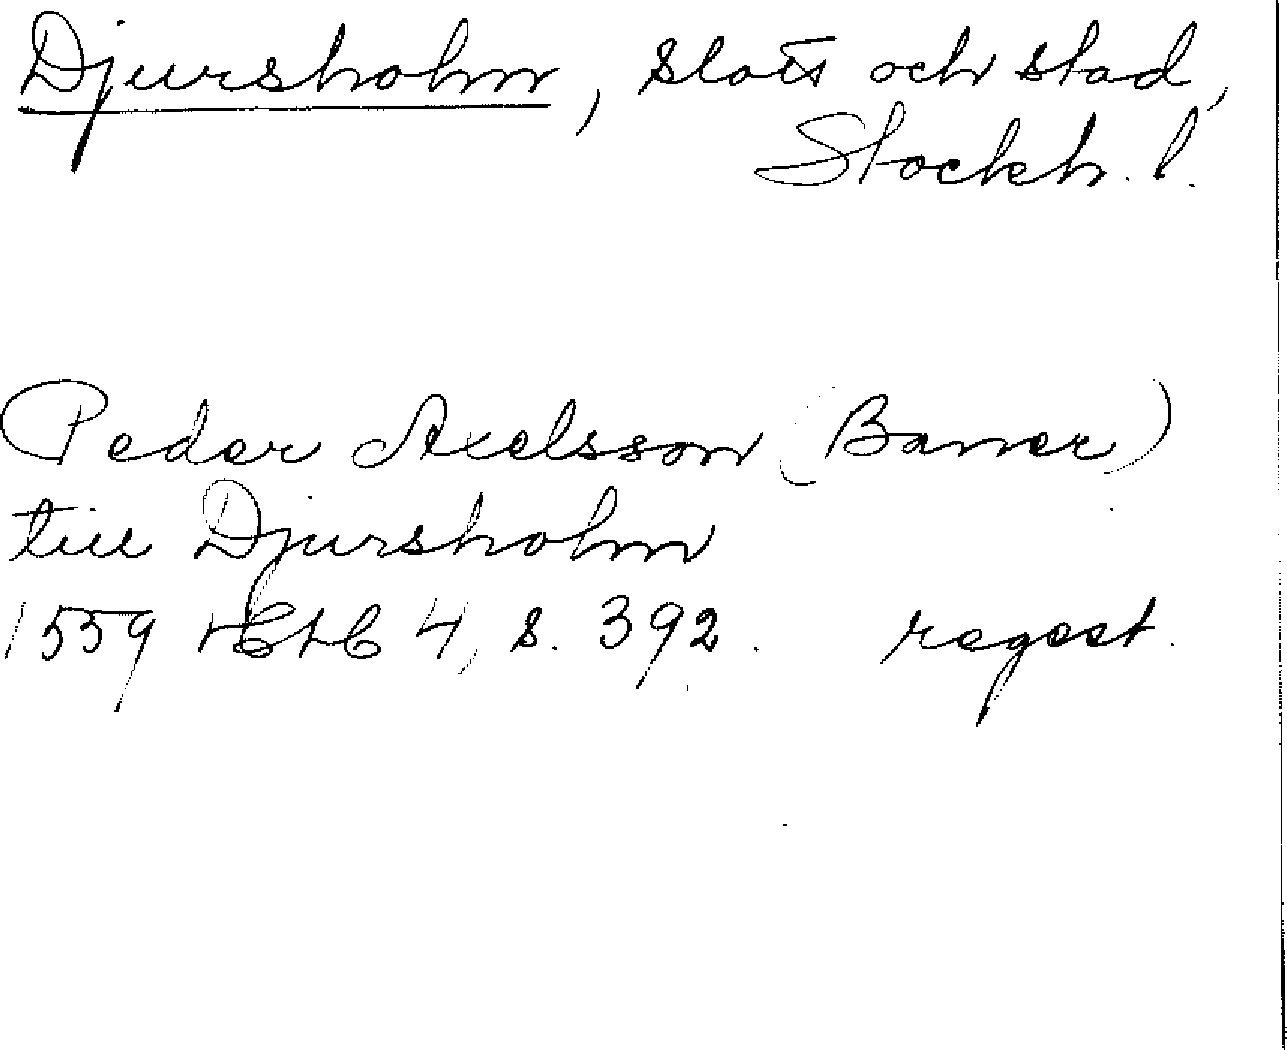 Djursholm, slott och stad,
Stockh. l.
Peder Axelsson (Baner)
till Djursholm
1559 4, s. 392. regest.